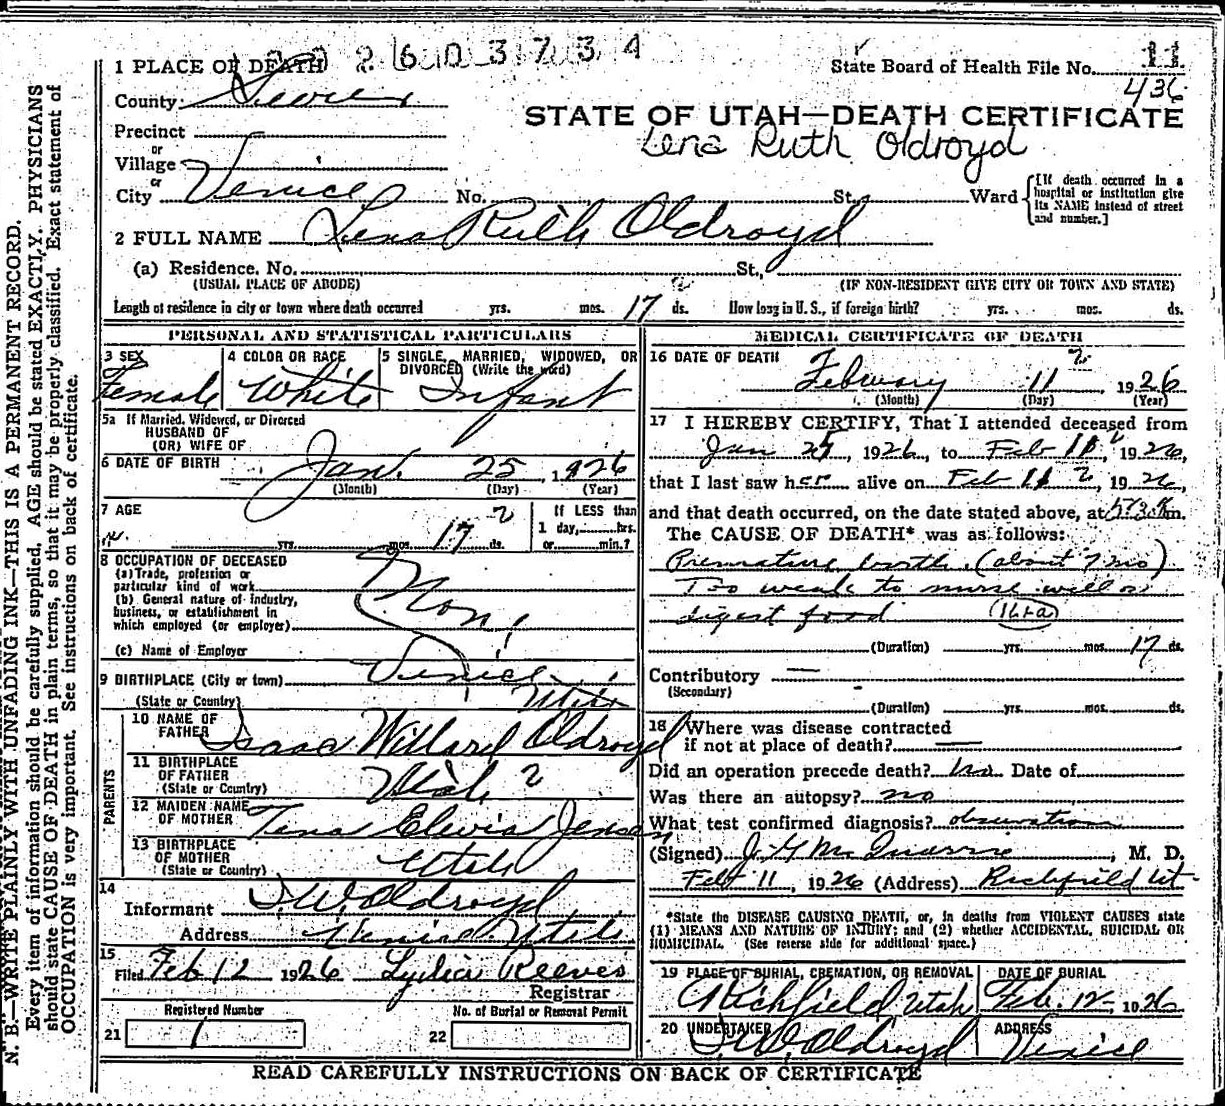 N. B.—WRITE PLAINLY WITH UNFADING INK—THIS IS A PERMANENT RECORD.
Every item of information should be carefully supplied. AGE should be stated EXACTLY. PHYSICIANS
should state CAUSE OF DEATH in plain terms, so that it may be properly classified. Exact statement of
OCCUPATION is very important. See instructions on back of certificate.
2 6 0 3 7 3 4
1 PLACE OF DEATH
State Board of Health File No. 11
436
County Sevier
STATE OF UTAH—DEATH CERTIFICATE
Lena Ruth Oldroyd
Precinct
or
Village
or
City Venice No. St. Ward
[If death occurred in a
hospital or institution give
its NAME instead of street
and number.]
2 FULL NAME Lena Ruth Oldroyd
(a) Residence. No. St.,
(USUAL PLACE OF ABODE) (IF NON-RESIDENT GIVE CITY OR TOWN AND STATE)
Length of residence in city or town where death occurred yrs. mos. 17 ds. How long in U. S., if foreign birth? yrs. mos. ds.
PERSONAL AND STATISTICAL PARTICULARS
3 SEX 4 COLOR OR RACE 5 SINGLE, MARRIED, WIDOWED, OR
DIVORCED (Write the word)
Female White Infant
5a If Married, Widowed, or Divorced
HUSBAND OF
(OR) WIFE OF
6 DATE OF BIRTH Jan. 25, 1926
(Month) (Day) (Year)
7 AGE If LESS than
1 day, hrs.
yrs. mos. 17 ds. or min.?
8 OCCUPATION OF DECEASED
(a) Trade, profession or
particular kind of work
(b) General nature of industry,
business, or establishment in
which employed (or employer)
(c) Name of Employer
9 BIRTHPLACE (City or town) Venice
(State or Country) Utah
PARENTS
10 NAME OF
FATHER Isaac Willard Oldroyd
11 BIRTHPLACE
OF FATHER Utah
(State or Country)
12 MAIDEN NAME
OF MOTHER Tena Elevia Jensen
13 BIRTHPLACE
OF MOTHER Utah
(State or Country)
14
Informant I.W. Oldroyd
Address Venice Utah
15
Filed Feb 12 1926 Lydia Reeves
Registrar
Registered Number No. of Burial or Removal Permit
21 1 22
MEDICAL CERTIFICATE OF DEATH
16 DATE OF DEATH
February 11 1926
(Month) (Day) (Year)
17 I HEREBY CERTIFY, That I attended deceased from
Jan 25, 1926, to Feb 11, 1926,
that I last saw her alive on Feb 11, 1926,
and that death occurred, on the date stated above, at m.
The CAUSE OF DEATH* was as follows:
Premature birth. (about 7 mo)
Too weak to nurse well or
digest food
(Duration) yrs. mos. 17 ds.
Contributory —
(Secondary)
(Duration) yrs. mos. ds.
18 Where was disease contracted
if not at place of death? —
Did an operation precede death? No Date of
Was there an autopsy? no
What test confirmed diagnosis? observation
(Signed) J. G. McQuarrie, M. D.
Feb 11, 1926 (Address) Richfield Ut
*State the DISEASE CAUSING DEATH, or, in deaths from VIOLENT CAUSES state
(1) MEANS AND NATURE OF INJURY; and (2) whether ACCIDENTAL, SUICIDAL OR
HOMICIDAL. (See reverse side for additional space.)
19 PLACE OF BURIAL, CREMATION, OR REMOVAL DATE OF BURIAL
Richfield Utah Feb. 12, 1926
20 UNDERTAKER ADDRESS
I.W. Oldroyd Venice
READ CAREFULLY INSTRUCTIONS ON BACK OF CERTIFICATE